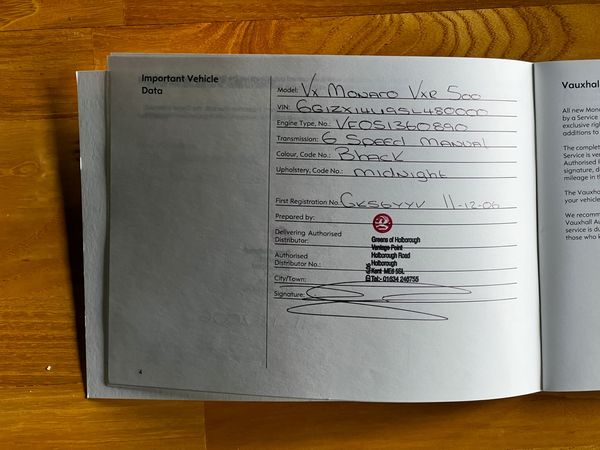 Important Vehicle
Data
Model: Vx Monaro VXR 500
VIN: 6G1ZX14U95L480000
Engine Type, No.: VF0S1360890
Transmission: 6 Speed Manual
Colour, Code No.: Black
Upholstery, Code No.: Midnight
First Registration No. GK56YYV 11-12-06
Prepared by:
Delivering Authorised
Distributor:
Authorised
Distributor No.:
City/Town:
Signature:
Greens of Holborough
Vantage Point
Holborough Road
Holborough
Kent ME6 5SL
Tel:- 01634 246755
4
Vauxhall
All new Mona
by a Service
exclusive rig
additions to
The complet
Service is ver
Authorised
signature, d
mileage in th
The Vauxha
your vehicle
We recomm
Vauxhall Au
service is du
those who k